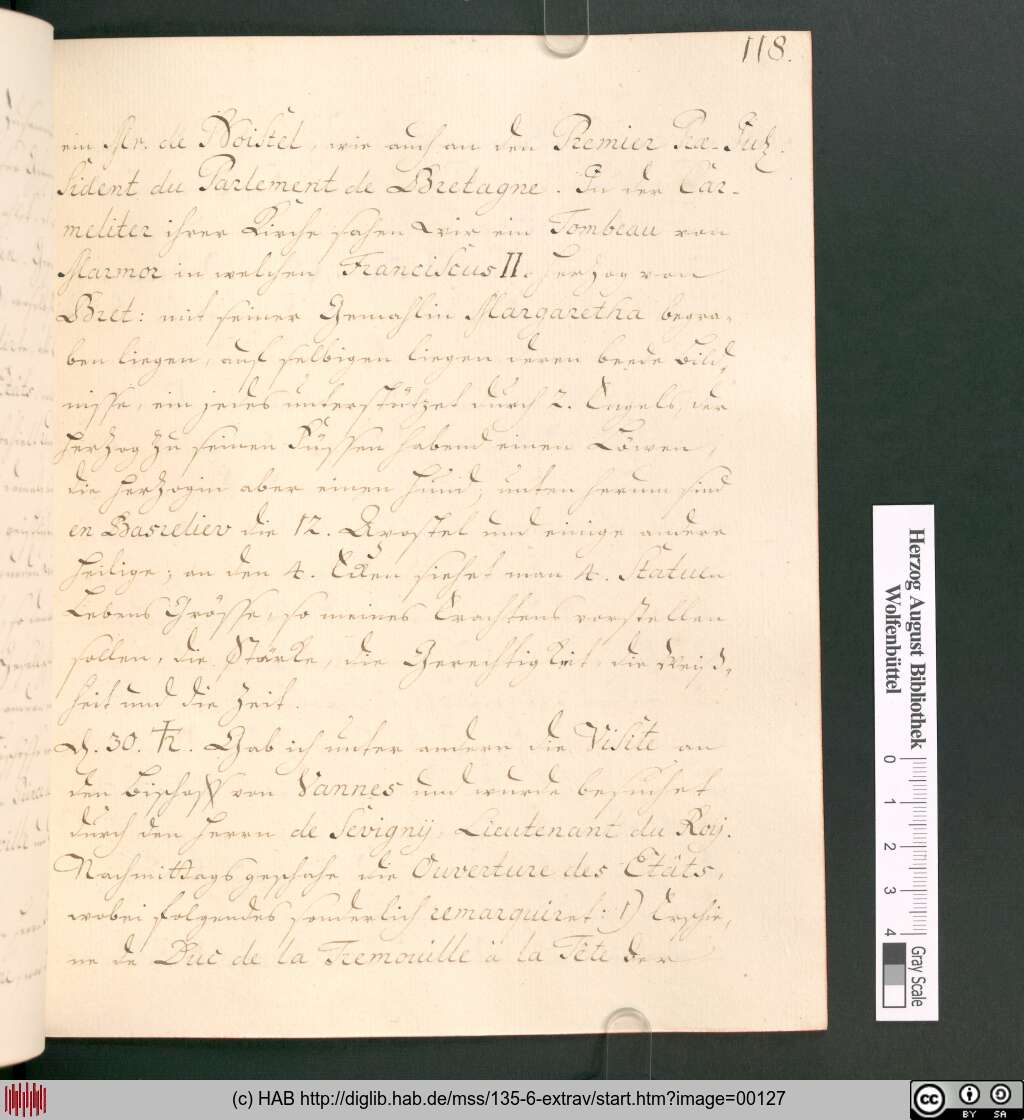 118.
ein Mr. de Nointel, wie auch an den Premier Præ-
sident du Parlement de Bretagne. In der Car-
meliter ihrer Kirche sahen wir ein Tombeau von
Marmor in welchen Franciscus II. Herzog von
Bret: mit seiner Gemahlin Margaretha begra-
ben liegen, auf selbigen liegen deren beede Bild-
nisse, ein jedes unterstützet durch 2. Engels, der
Herzog zu seinen Füssen habend einen Löwen,
die Herzogin aber einen Hund, unten herum sind
en Basreliev die 12. Apostel und einige andere
Heilige; an den 4. Ecken siehet man 4. Statuen
Lebens Grösse, so meines Erachtens vorstellen
sollen, die Stärke, die Gerechtigkeit, die Weiß-
heit und die Zeit.
d. 30. ♄. Gab ich unter andern die Visite an
den Bischoff von Vannes und wurde besuchet
durch den Herrn de Sevignÿ, Lieutenant du Roÿ.
Nachmittags geschahe die Ouverture des Etâts,
wobei folgendes sonderlich remarquiret: 1) Erschie-
ne de Duc de la Tremouille à la Tête der
Herzog August Bibliothek
Wolfenbüttel
0 1 2 3 4
Gray Scale
(c) HAB http://diglib.hab.de/mss/135-6-extrav/start.htm?image=00127
cc BY SA